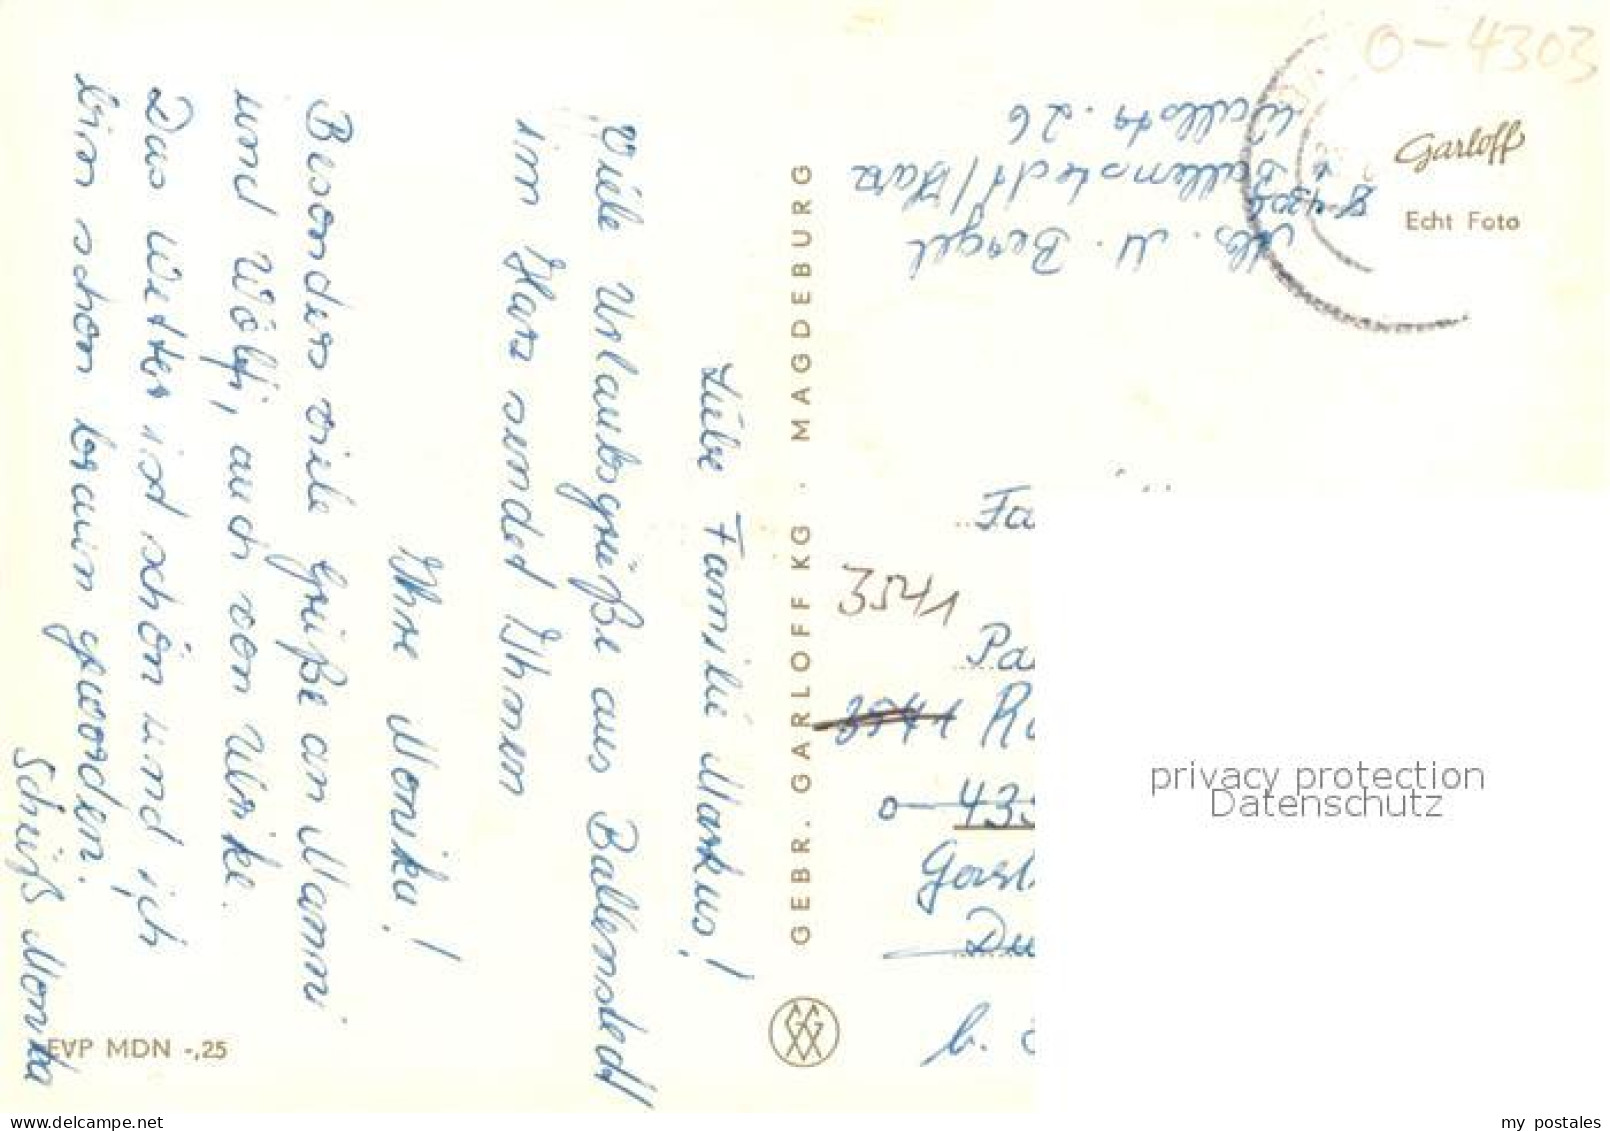 Liebe Familie Markus!
Viele Urlaubsgrüße aus Ballenstedt
im Harz sendet Ihnen
Ihre Monika!
Besonders viele Grüße an Mammi
und Wölfi, auch von Ulrike.
Das Wetter ist schön und ich
bin schon braun geworden.
Schüß Monika
EVP MDN -,25
GEBR. GARLOFF KG · MAGDEBURG
O-4303
Garloff
Echt Foto
Abs. M. Bergel
Ballenstedt/Harz
Wallstr. 26
Fa
3541
Pa
3541
o-43
Du
b.
privacy protection
Datenschutz
my postales